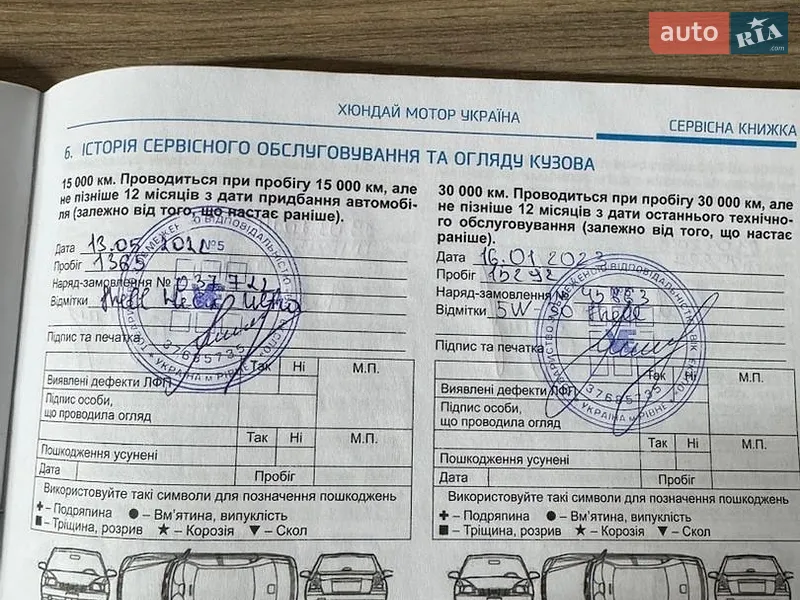 auto RIA .com
ХЮНДАЙ МОТОР УКРАЇНА
СЕРВІСНА КНИЖКА
6. ІСТОРІЯ СЕРВІСНОГО ОБСЛУГОВУВАННЯ ТА ОГЛЯДУ КУЗОВА
15 000 км. Проводиться при пробігу 15 000 км, але
не пізніше 12 місяців з дати придбання автомобі-
ля (залежно від того, що настає раніше).
Дата 13.05
Пробіг 1365
Наряд-замовлення №
Відмітки Shell Helix Ultra
Підпис та печатка
№5
УКРАЇНА м РІВНЕ
37685735
Так Ні М.П.
Виявлені дефекти ЛФП
Підпис особи,
що проводила огляд
Так Ні М.П.
Пошкодження усунені
Дата Пробіг
Використовуйте такі символи для позначення пошкоджень
+ – Подряпина ● – Вм'ятина, випуклість
■ – Тріщина, розрив ★ – Корозія ▼ – Скол
30 000 км. Проводиться при пробігу 30 000 км, але
не пізніше 12 місяців з дати останнього технічно-
го обслуговування (залежно від того, що настає
раніше).
Дата 16.01 2023
Пробіг 15292
Наряд-замовлення №
Відмітки 5W-30 Shell
Підпис та печатка
37685735
УКРАЇНА м РІВНЕ
Так Ні М.П.
Виявлені дефекти ЛФП
Підпис особи,
що проводила огляд
Так Ні М.П.
Пошкодження усунені
Дата Пробіг
Використовуйте такі символи для позначення пошкоджень
+ – Подряпина ● – Вм'ятина, випуклість
■ – Тріщина, розрив ★ – Корозія ▼ – Скол